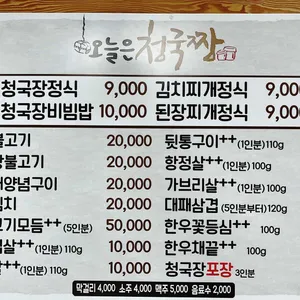 오늘은청국짱
청국장정식 9,000 김치찌개정식 9,0
청국장비빔밥 10,000 된장찌개정식 9,0
불고기 20,000 뒷통구이++ (1인분)110g
불고기 20,000 항정살++ (1인분)100g
양념구이 20,000 가브리살++ (1인분)100g
20,000 대패삼겹 (5인분부터)120g
고기모듬++ (5인분) 50,000 한우꽃등심++ 100g
살++ (1인분)110g 10,000 한우채끝++ 100g
++ (1인분)110g 10,000 청국장포장 3인분
막걸리 4,000 소주 4,000 맥주 5,000 음료수 2,000